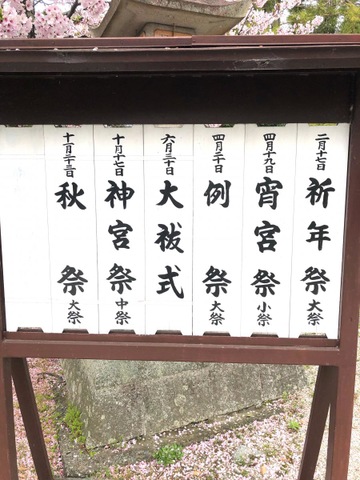 二月十七日 祈年祭 大祭
四月十九日 宵宮祭 小祭
四月二十日 例祭 大祭
六月三十日 大祓式
十月十七日 神宮祭 中祭
十一月二十三日 秋祭 大祭